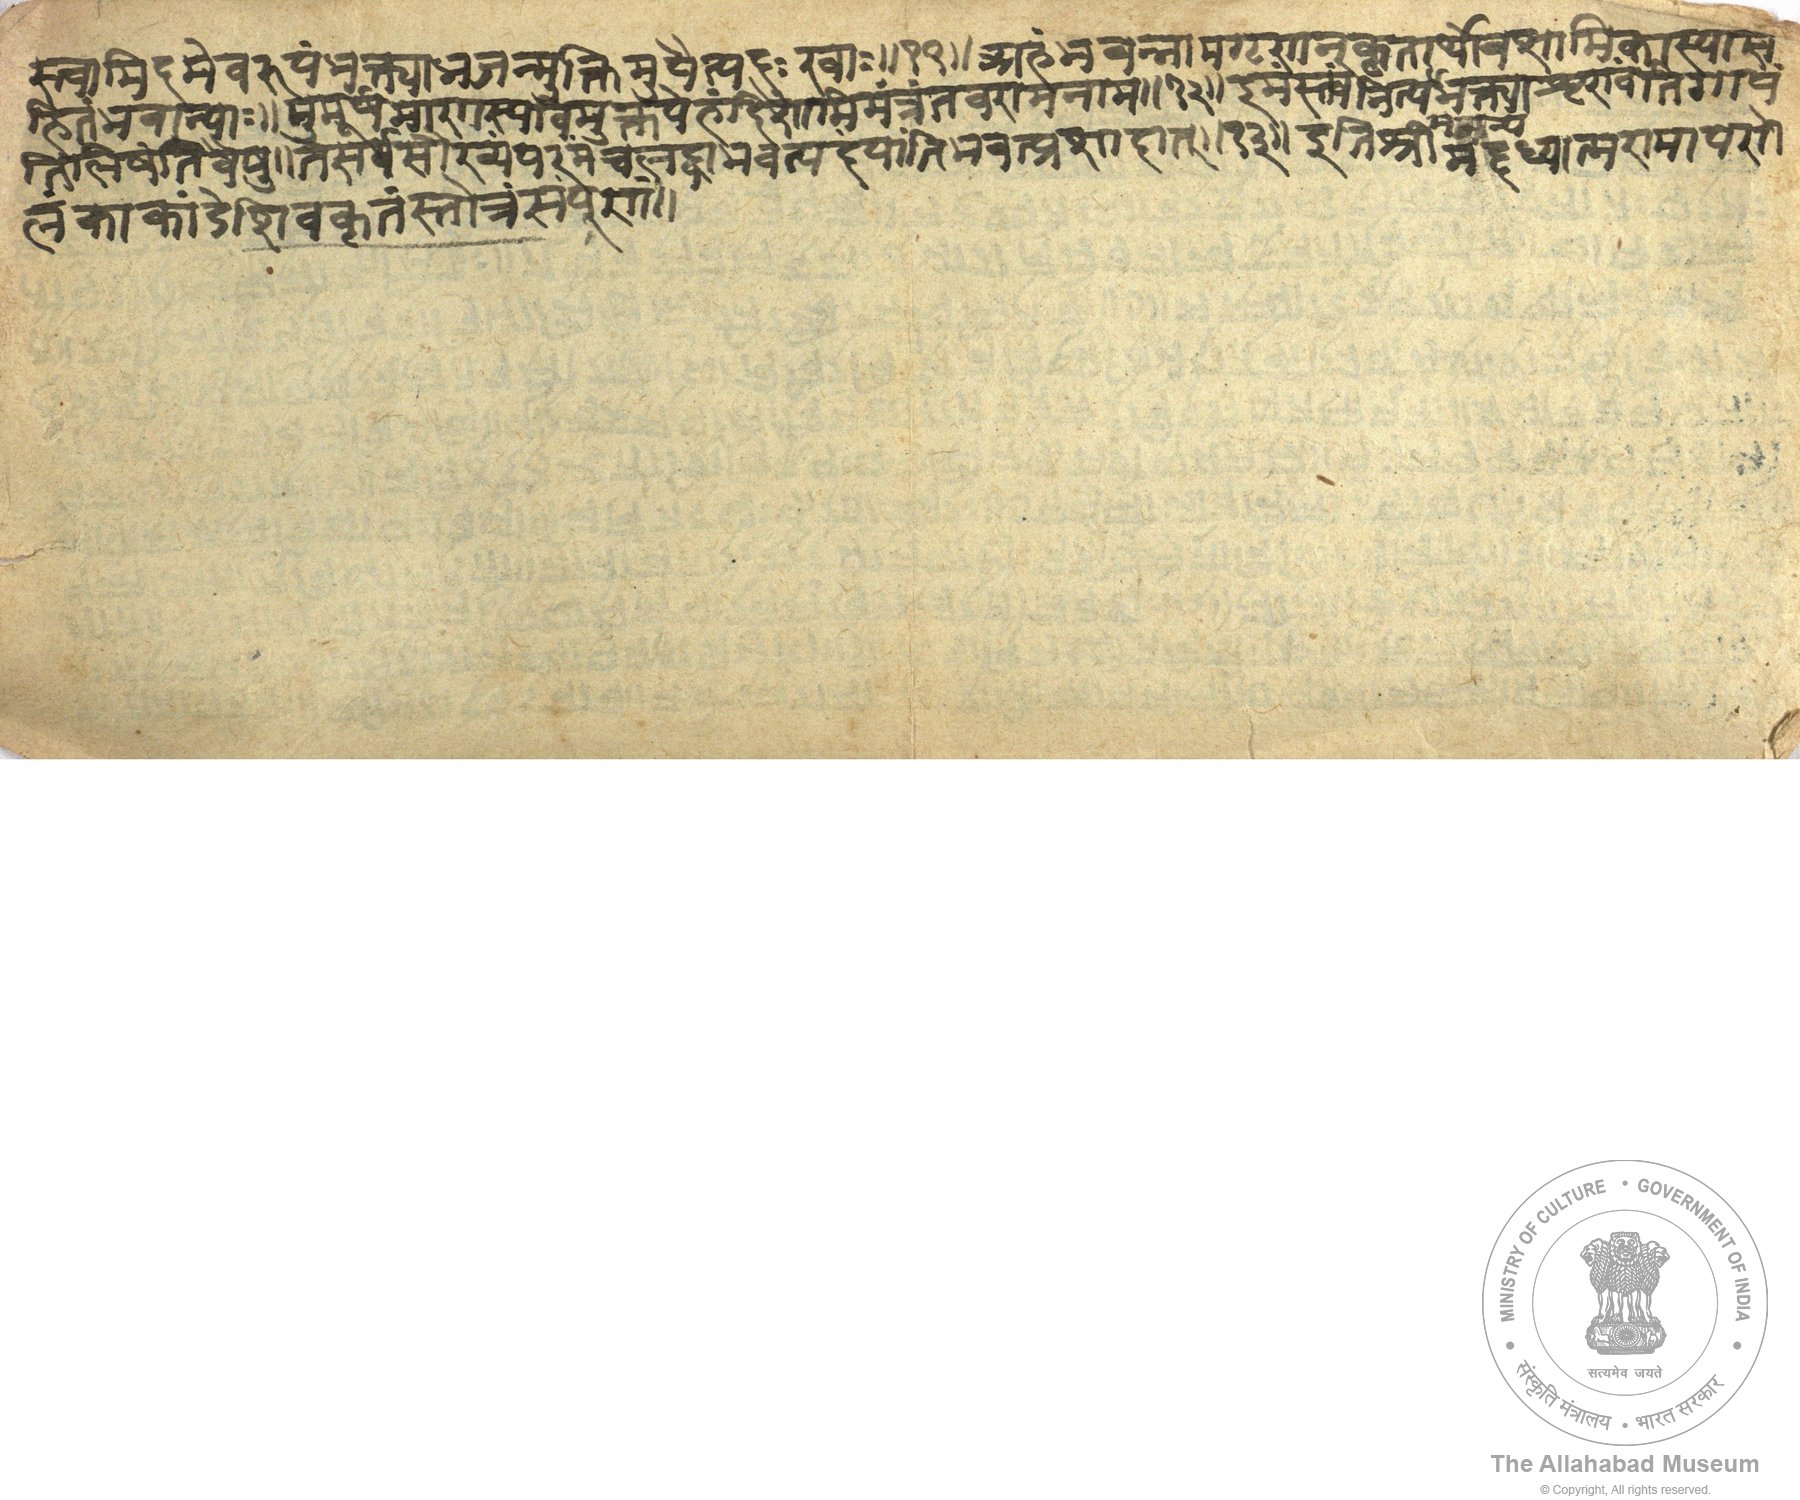 स्त्वामिदमेवरूपंभक्त्याभजन्मुक्तिमुपैत्यदुःखाः॥११॥अहंभवन्नामगृणन्कृतार्थोवशामिकास्यास
हितंभवान्याः॥मुमूर्षमाणस्यविमुक्तयेहंदिशामिमंत्रंतवरामनाम॥१२॥इमंस्तवंनित्यभक्त्याशृण्वंतिगायं
तिलिषंतियेषु॥तेसर्वसौख्यंपरमंचलब्ध्वाभवत्पदंयांतिभवत्प्रशाहात्॥१३॥इतिश्रीमदध्यात्मरामायणे
लंकाकांडेशिवकृतंस्तोत्रंसंपूर्णं॥
MINISTRY OF CULTURE • GOVERNMENT OF INDIA
सत्यमेव जयते
संस्कृति मंत्रालय • भारत सरकार
The Allahabad Museum
© Copyright, All rights reserved.